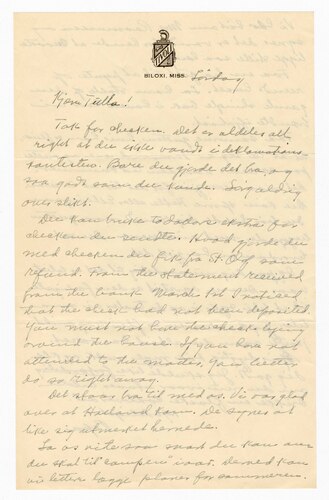 BILOXI, MISS. Lördag
Kjære Tulla!
Tak for checken. Det er aldeles all
right at du ikke vandt i deklamations
kontesten. Bare du gjorde det bra, og
saa godt som du kunde. Sorg aldrig
over slikt.
Du kan bruke to dollars ekstra for
checken du sendte. Hvad gjorde du
med checken du fik fra St. Olaf som
refund. From the statement received
from the bank March 1st I noticed
that the check had not been deposited.
You must not have the checks lying
around the house. If you have not
attended to the matter, you better
do so right away.
Det staar bra til med os. Vi var glad
over at Haaland kom. De synes at
like sig utmerket hernede.
La os vite saa snart du kan om
du skal til "campen" iaar. Derved kan
vi letter lægge planer for sommeren.